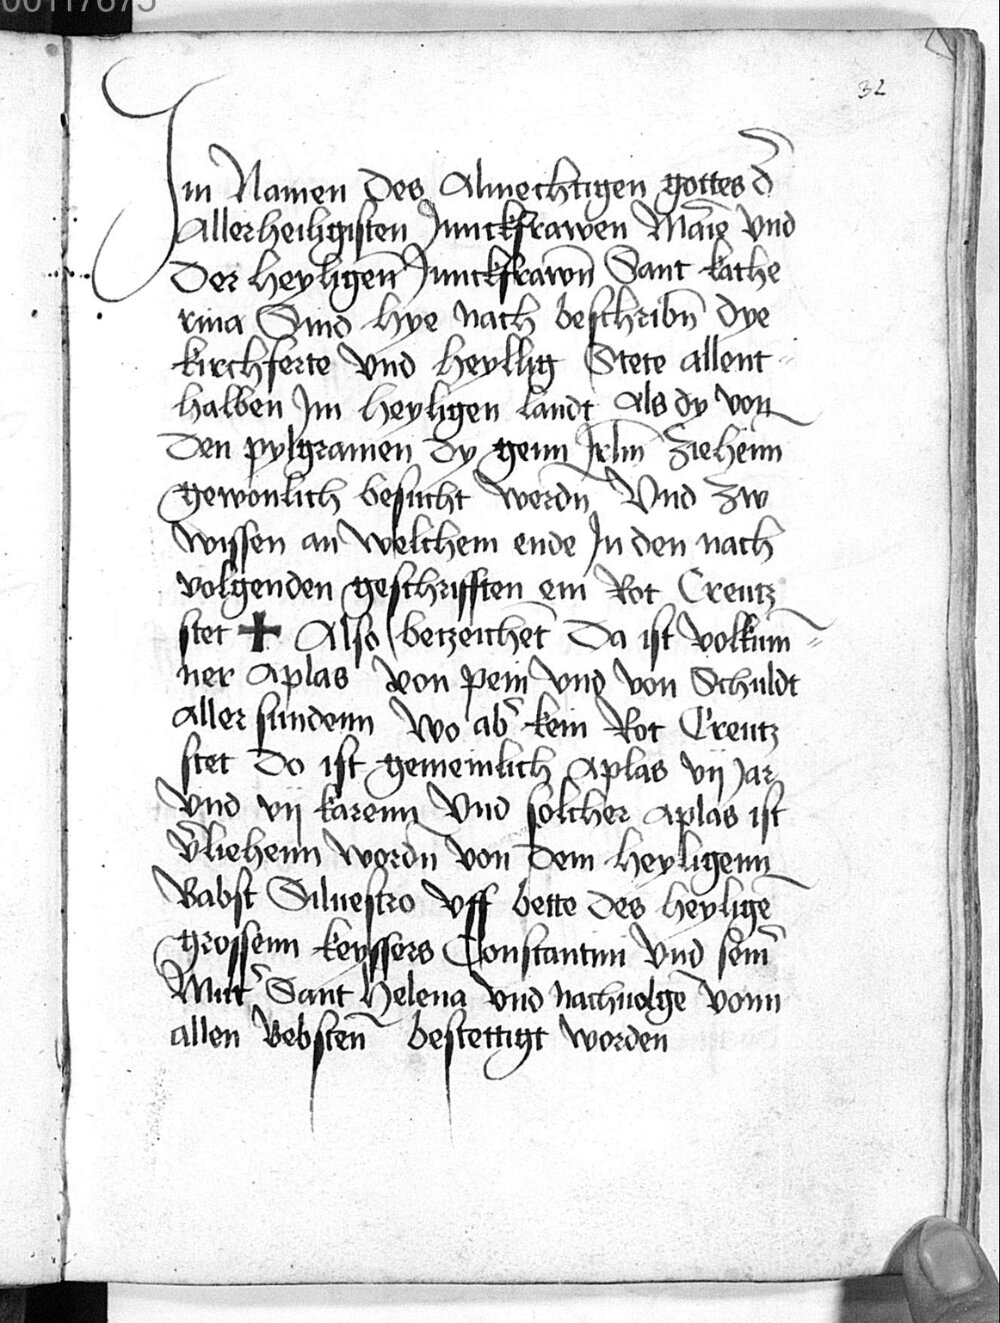 00117675
32
Im Namen des Almechtigen gottes d̄
Allerheiligisten Junckfrawen Marie vnd
Der heyligen Junckfrawn̄ Sant kathe
rina Sind hye nach beschribn̄ dye
kirchferte vnd heyllig Stete allent
halben Im heyligen landt als dy von
den pylgramen dy genn Jrlm̄ ziehenn
gewonlich besucht werdn̄ Vnd zw
wissen an welchem ende In den nach
volgenden geschrifften ein Rot Creutz
stet ✚ Also betzeichet̄ Da ist volkum̄
ner aplas von pein vnd von Schuldt
aller sundenn Wo ab̄ kein Rot Creutz
stet Do ist gemeinlich aplas vij Jar
vnd vij karenn Vnd solcher aplas ist
v̄liehenn wordn̄ von dem heyligenn
Babst Siluestro vff bette des heylige̅
grossenn keyssers Constantini vnd sein̄
Mut̄ Sant Helena vnd nachuolge̅ vonn
allen Bebsten̄ bestettigt worden